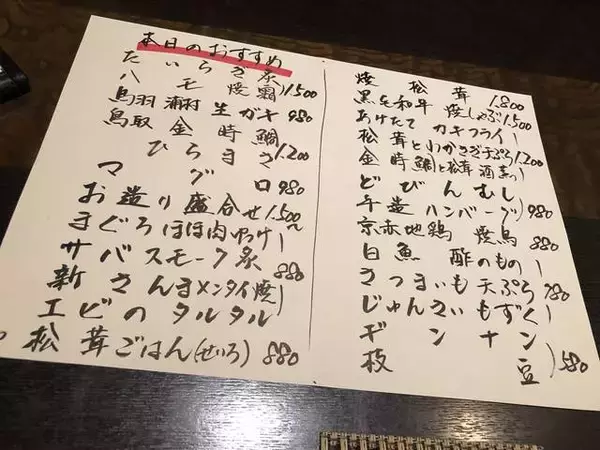 本日のおすすめ
たいらぎ炙
ハモ焼霜 1.500
鳥羽浦村生ガキ 980
鳥取金時鯛
ひらまさ 1.200
マグロ 980
お造り盛合せ 1.500〜
まぐろほほ肉
サバスモーク炙 880
新さんまメンタイ焼
エビのタルタル
松茸ごはん(せいろ) 880
焼松茸 1.800
黒毛和牛焼しゃぶ 1.500
あげたてカキフライ
松茸とわかさぎ天ぷら 1.200
金時鯛と松茸酒
どびんむし
手造ハンバーグ 980
京赤地鶏焼鳥 880
白魚酢のもの
さつまいも天ぷら 780
じゅんさいもずく
ギンナン
枝豆 580